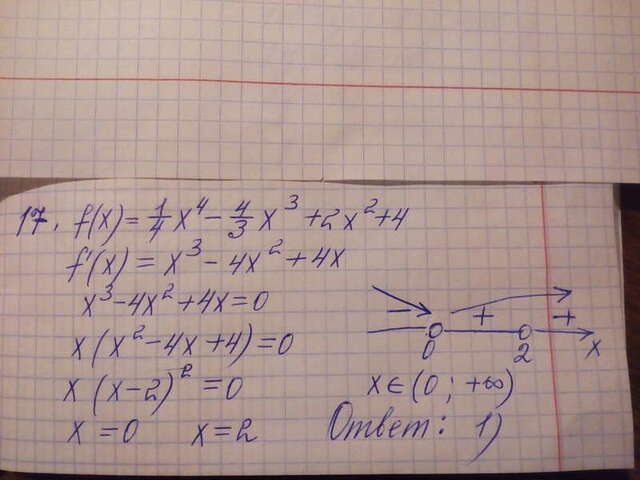 17. f(x) = 1/4 x⁴ - 4/3 x³ + 2x² + 4
f'(x) = x³ - 4x² + 4x
x³ - 4x² + 4x = 0
x(x² - 4x + 4) = 0
x(x - 2)² = 0
x = 0 x = 2
- + +
0 2 x
x ∈ (0; +∞)
Ответ: 1)